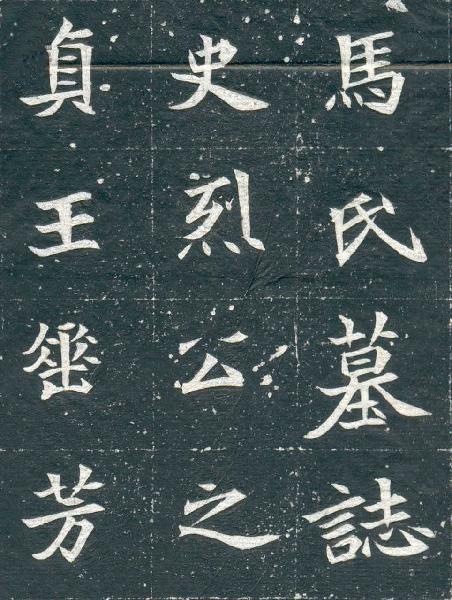 馬氏墓誌
史烈公之
貞王垂芳